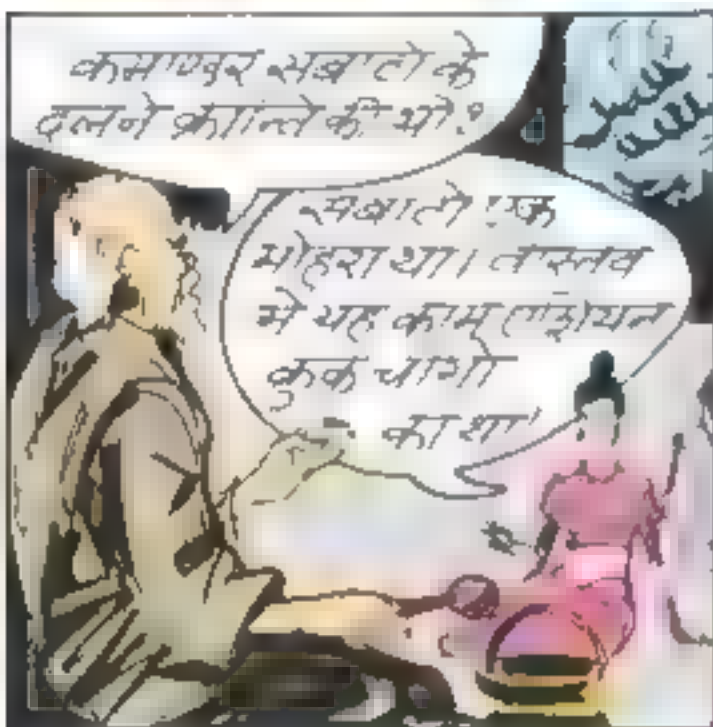 कमाण्डर सबाटो के
दलने क्रान्ति की थी?
सबाटो एक
मोहरा था। वास्तव
मे यह काम एशियन
कुक चांगो
का था